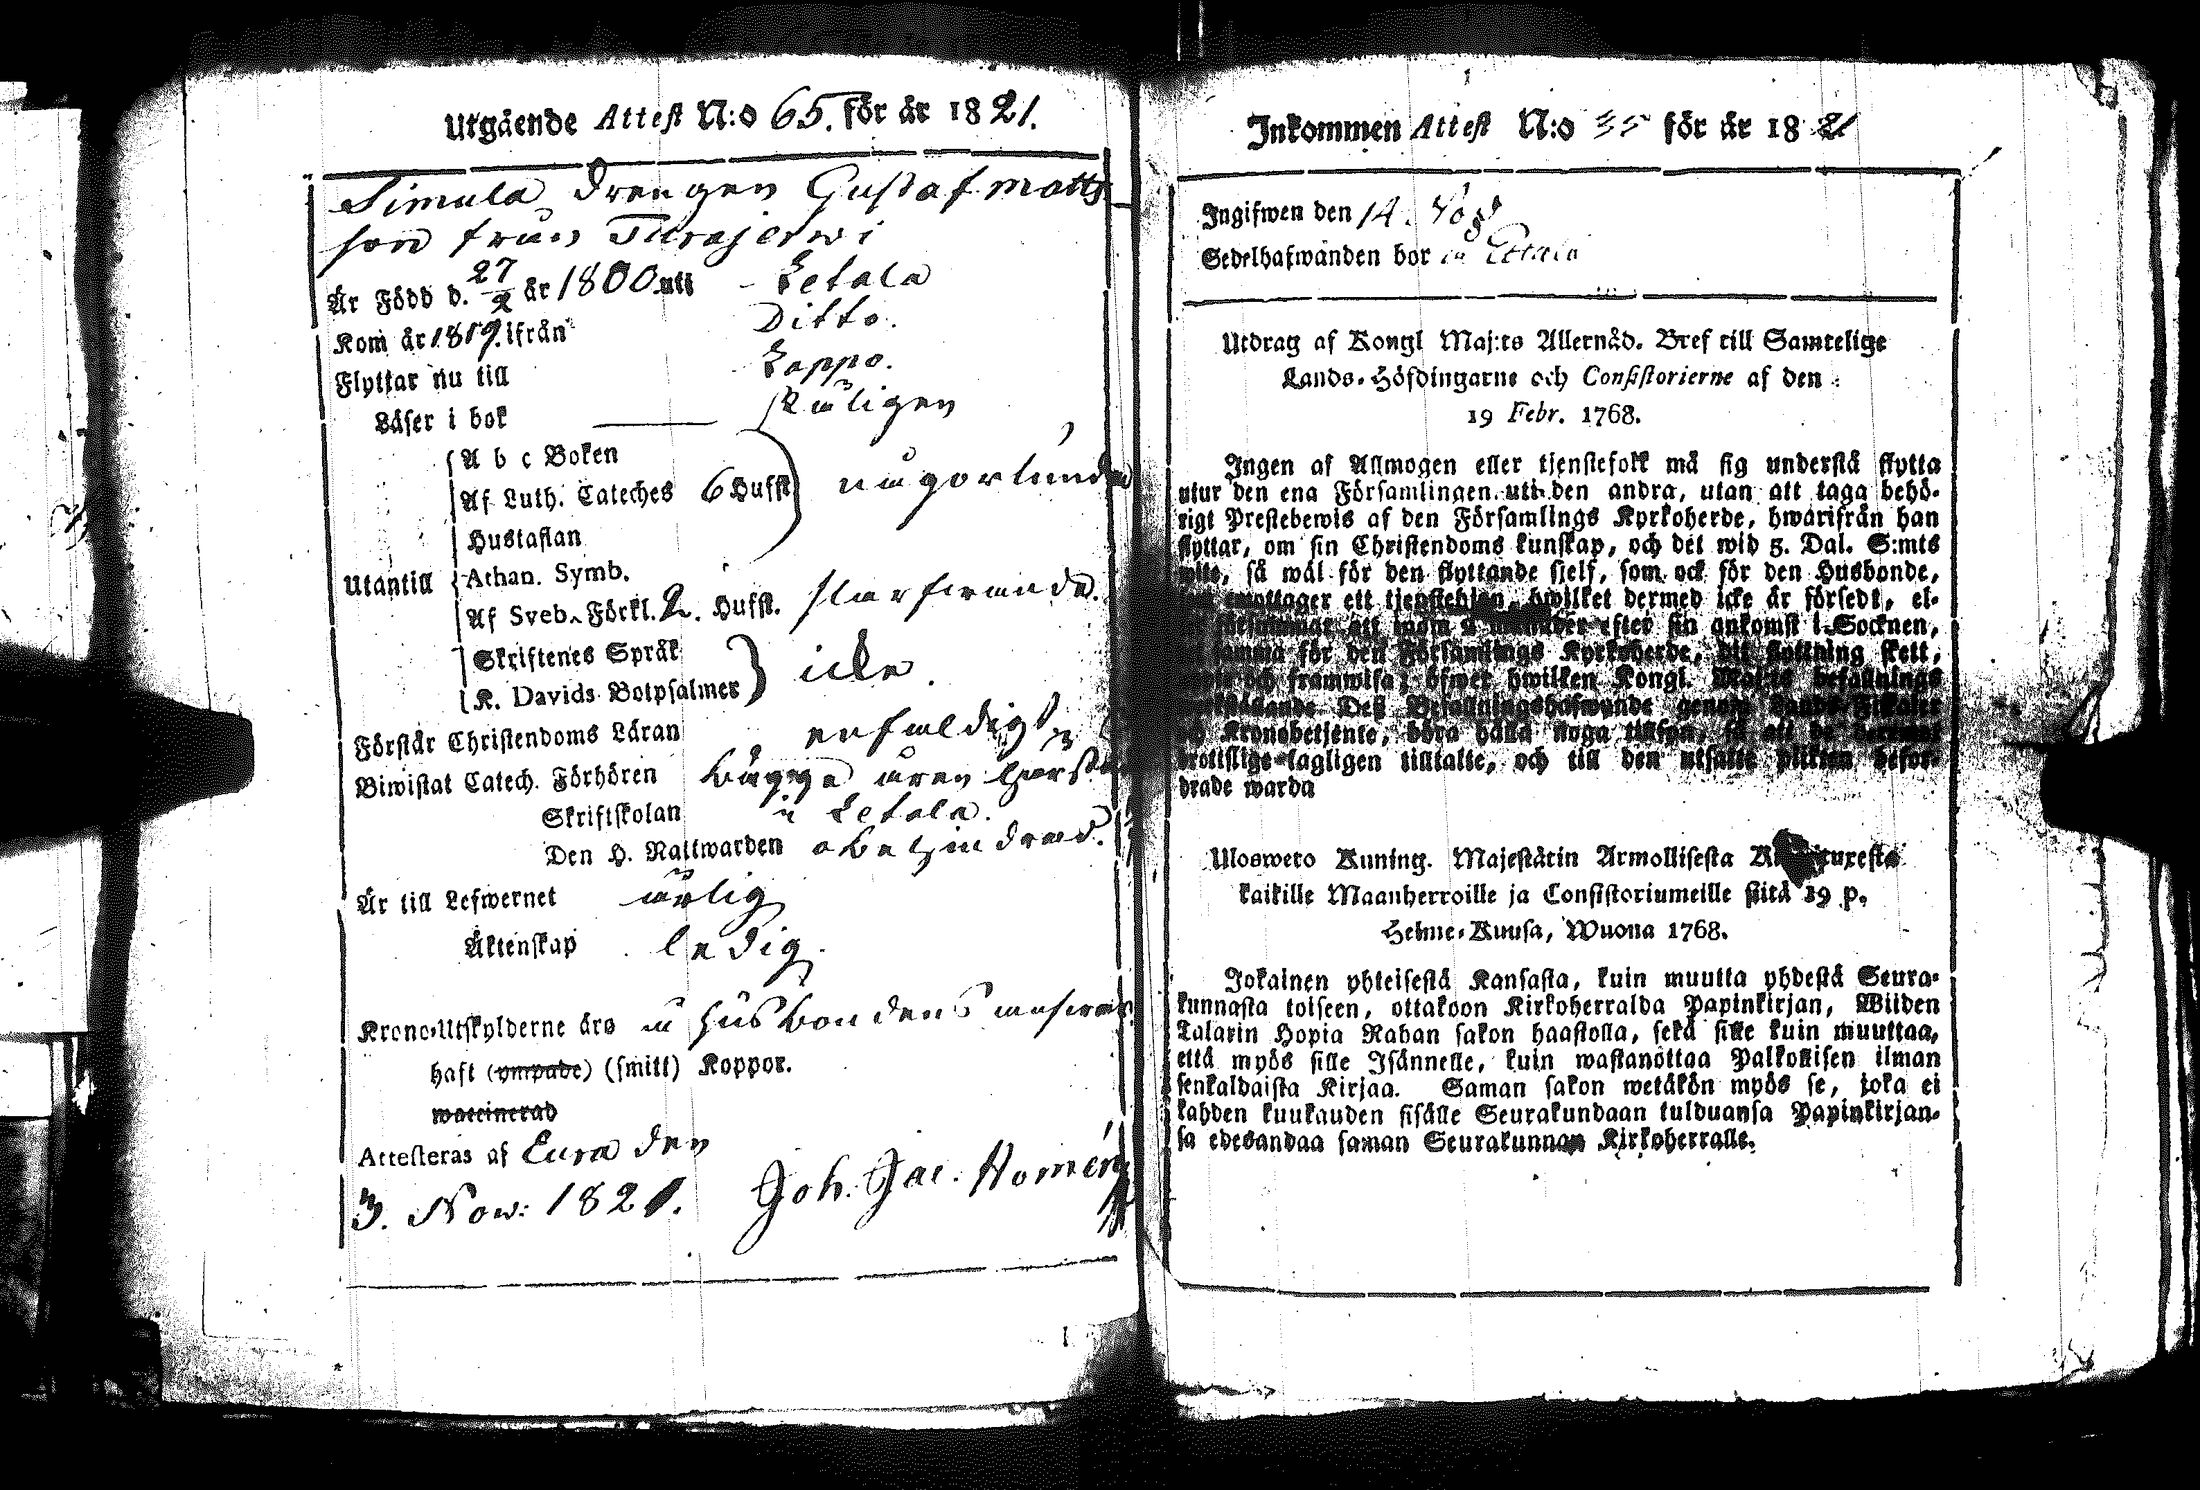 Utgående Attest N:o 65. för år 1821.
Simula drengen Gustaf Matts
son från Turajerwi
Är Född d. 27/2 år 1800 uti - Letala
Kom år 1819. ifrån Ditto.
Flyttar nu till Lappo.
Läser i bok —— Råligen
A b c Boken
Af Luth. Cateches 6 Hufst någorlunda
Hustaflan
Utantill
Athan. Symb.
Af Sveb. Förkl. 2. Hufst.
Skriftenes Språk
K. Davids Botpsalmer icke.
Förstår Christendoms Läran enfaldigt
Biwistat Catech. Förhören Bägge åren
Skriftskolan i Letala.
Den H. Nattwarden obehindrad.
Är till Lefwernet ärlig
Äktenskap ledig.
Krono-Utskylderne äro å Husbondens
haft (ympade) (smitt) Koppor.
waccinerad
Attesteras af Eura den
3. Now: 1821. Joh. Jac. Homén
Inkommen Attest N:o 35 för år 1821
Ingifwen den 14.
Sedelhafwanden bor
Utdrag af Kongl Maj:ts Allernåd. Bref till Samtelige
Lands-Höfdingarne och Consistorierne af den
19 Febr. 1768.
Ingen af Allmogen eller tjenstefolk må sig understå flytta
utur den ena Församlingen uti den andra, utan att taga behö-
rigt Prestebewis af den Församlings Kyrkoherde, hwarifrån han
flyttar, om sin Christendoms kunskap, och det wid 5. Dal. S:mts
wite, så wäl för den flyttande sjelf, som ock för den Husbonde,
som emottager ett tjenstehjon, hwilket dermed icke är försedt, el-
försummar att inom 2 månader efter sin ankomst i Socknen,
samma för den Församlings Kyrkoherde, dit flyttning skett,
och framwisa; öfwer hwilken Kongl. Maj:ts befallnings
Deß Befallningshafwande genom Lands-Fiskaler
och Kronobetjente, böra hålla noga tillsyn, så att de deremot
brottslige lagligen tilltalte, och till den utsatte plikten befor-
drade warda
Ulosweto Kuning. Majestätin Armollisesta
kaikille Maanherroille ja Consistoriumeille siitä 19 p.
Helme-Kuusa, Wuona 1768.
Jokainen yhteisestä Kansasta, kuin muutta yhdestä Seura-
kunnasta toiseen, ottakoon Kirkoherralda Papinkirjan, Wiiden
Talarin Hopia Rahan sakon haastolla, sekä sille kuin muuttaa,
että myös sille Isännelle, kuin wastanottaa Palkollisen ilman
senkaldaista Kirjaa. Saman sakon wetäkön myös se, joka ei
kahden kuukauden sisälle Seurakundaan tulduansa Papinkirjan-
sa edesandaa saman Seurakunnan Kirkoherralle.